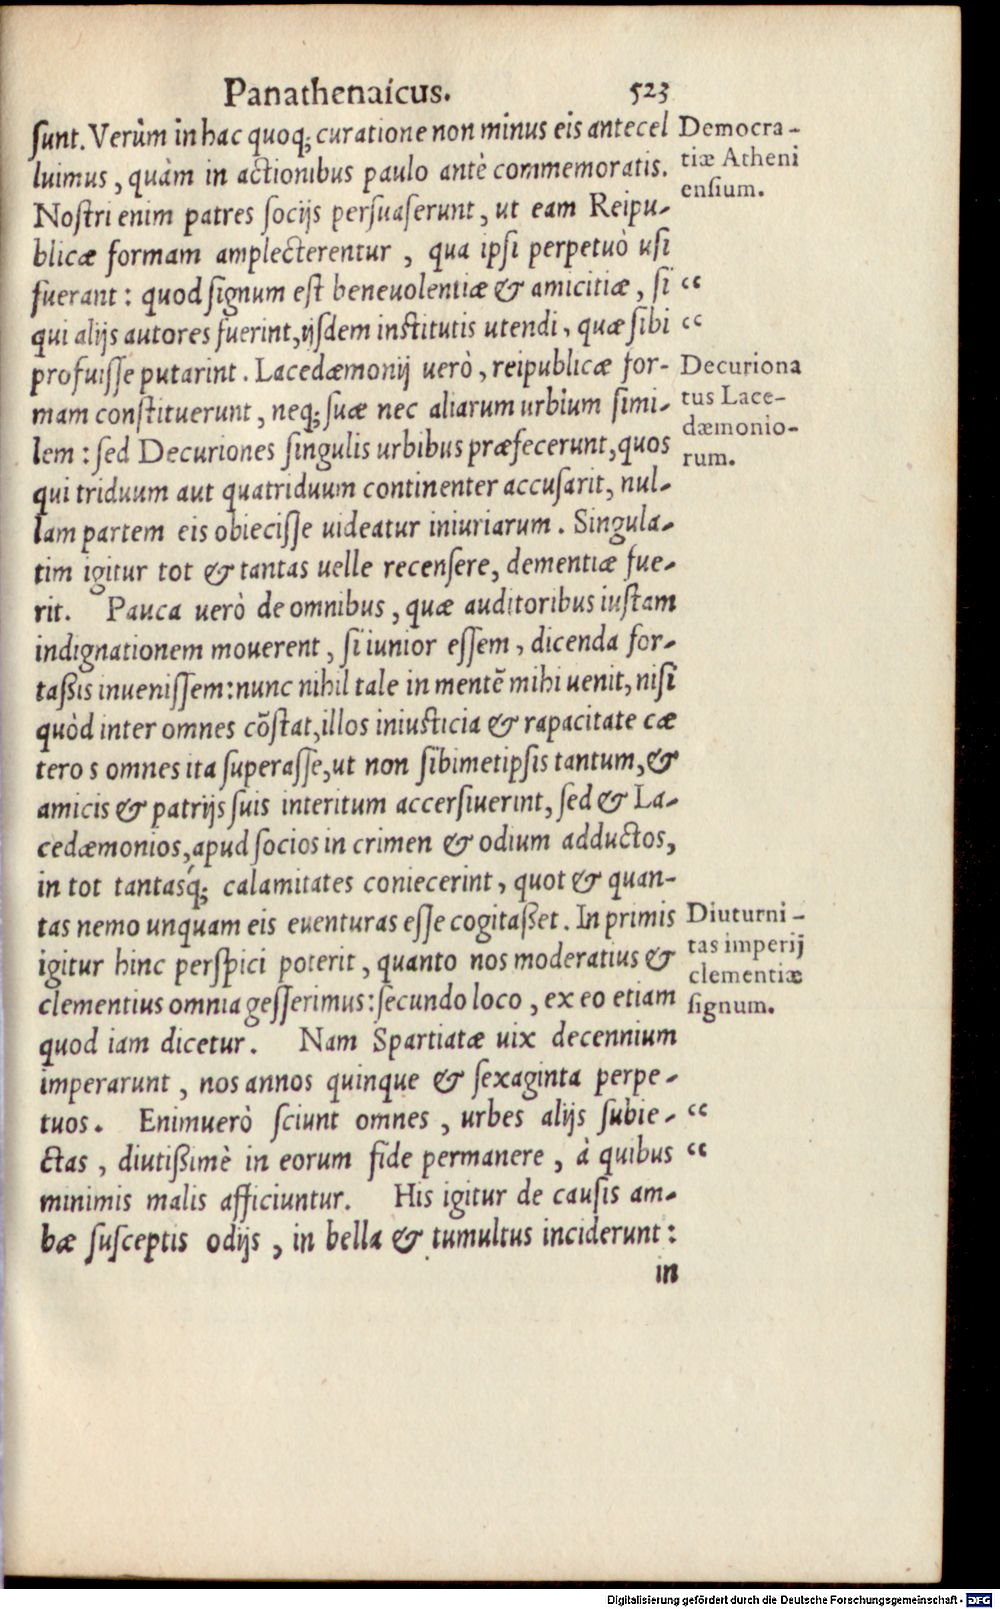 Panathenaicus. 523
ſunt. Verùm in hac quoq; curatione non minus eis antecel
luimus, quàm in actionibus paulo antè commemoratis.
Noſtri enim patres ſocijs perſuaſerunt, ut eam Reipu-
blicæ formam amplecterentur, qua ipſi perpetuò uſi
fuerant: quod ſignum eſt beneuolentiæ & amicitiæ, ſi
qui alijs autores fuerint, ijſdem inſtitutis utendi, quæ ſibi
profuiſſe putarint. Lacedæmonij uerò, reipublicæ for-
mam conſtituerunt, neq; ſuæ nec aliarum urbium ſimi-
lem: ſed Decuriones ſingulis urbibus præfecerunt, quos
qui triduum aut quatriduum continenter accuſarit, nul-
lam partem eis obieciſſe uideatur iniuriarum. Singula-
tim igitur tot & tantas uelle recenſere, dementiæ fue-
rit. Pauca uerò de omnibus, quæ auditoribus iuſtam
indignationem mouerent, ſi iunior eſſem, dicenda for-
taßis inueniſſem: nunc nihil tale in mentē mihi uenit, niſi
quòd inter omnes cōſtat, illos iniuſticia & rapacitate cæ
teros omnes ita ſuperaſſe, ut non ſibimetipſis tantum, &
amicis & patrijs ſuis interitum accerſiuerint, ſed & La-
cedæmonios, apud ſocios in crimen & odium adductos,
in tot tantasq́; calamitates coniecerint, quot & quan-
tas nemo unquam eis euenturas eſſe cogitaßet. In primis
igitur hinc perſpici poterit, quanto nos moderatius &
clementius omnia geſſerimus: ſecundo loco, ex eo etiam
quod iam dicetur. Nam Spartiatæ uix decennium
imperarunt, nos annos quinque & ſexaginta perpe-
tuos. Enimuerò ſciunt omnes, urbes alijs ſubie-
ctas, diutißimè in eorum fide permanere, à quibus
minimis malis afficiuntur. His igitur de cauſis am-
bæ ſuſceptis odijs, in bella & tumultus inciderunt:
in
Democra-
tiæ Atheni
enſium.
“
“
Decuriona
tus Lace-
dæmonio-
rum.
Diuturni-
tas imperij
clementiæ
ſignum.
“
“
Digitalisierung gefördert durch die Deutsche Forschungsgemeinschaft - DFG